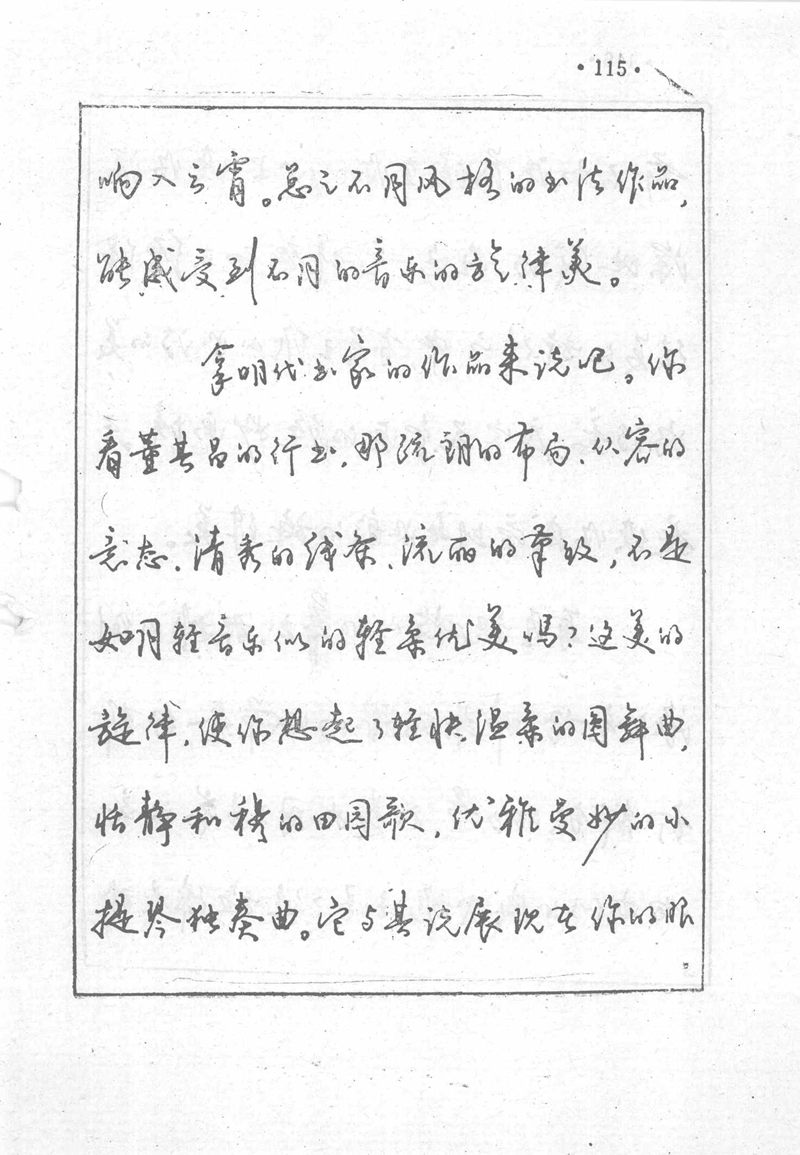 ·115·
响入云霄。总之不同风格的书法作品，
能感受到不同的音乐的旋律美。
拿明代书家的作品来说吧。你
看董其昌的行书，那疏朗的布局、从容的
意态、清秀的线条、流丽的笔致，不是
如同轻音乐似的轻柔优美吗？这美的
旋律，使你想起了轻快温柔的圆舞曲，
恬静和穆的田园歌，优雅曼妙的小
提琴独奏曲。它与其说展现在你的眼